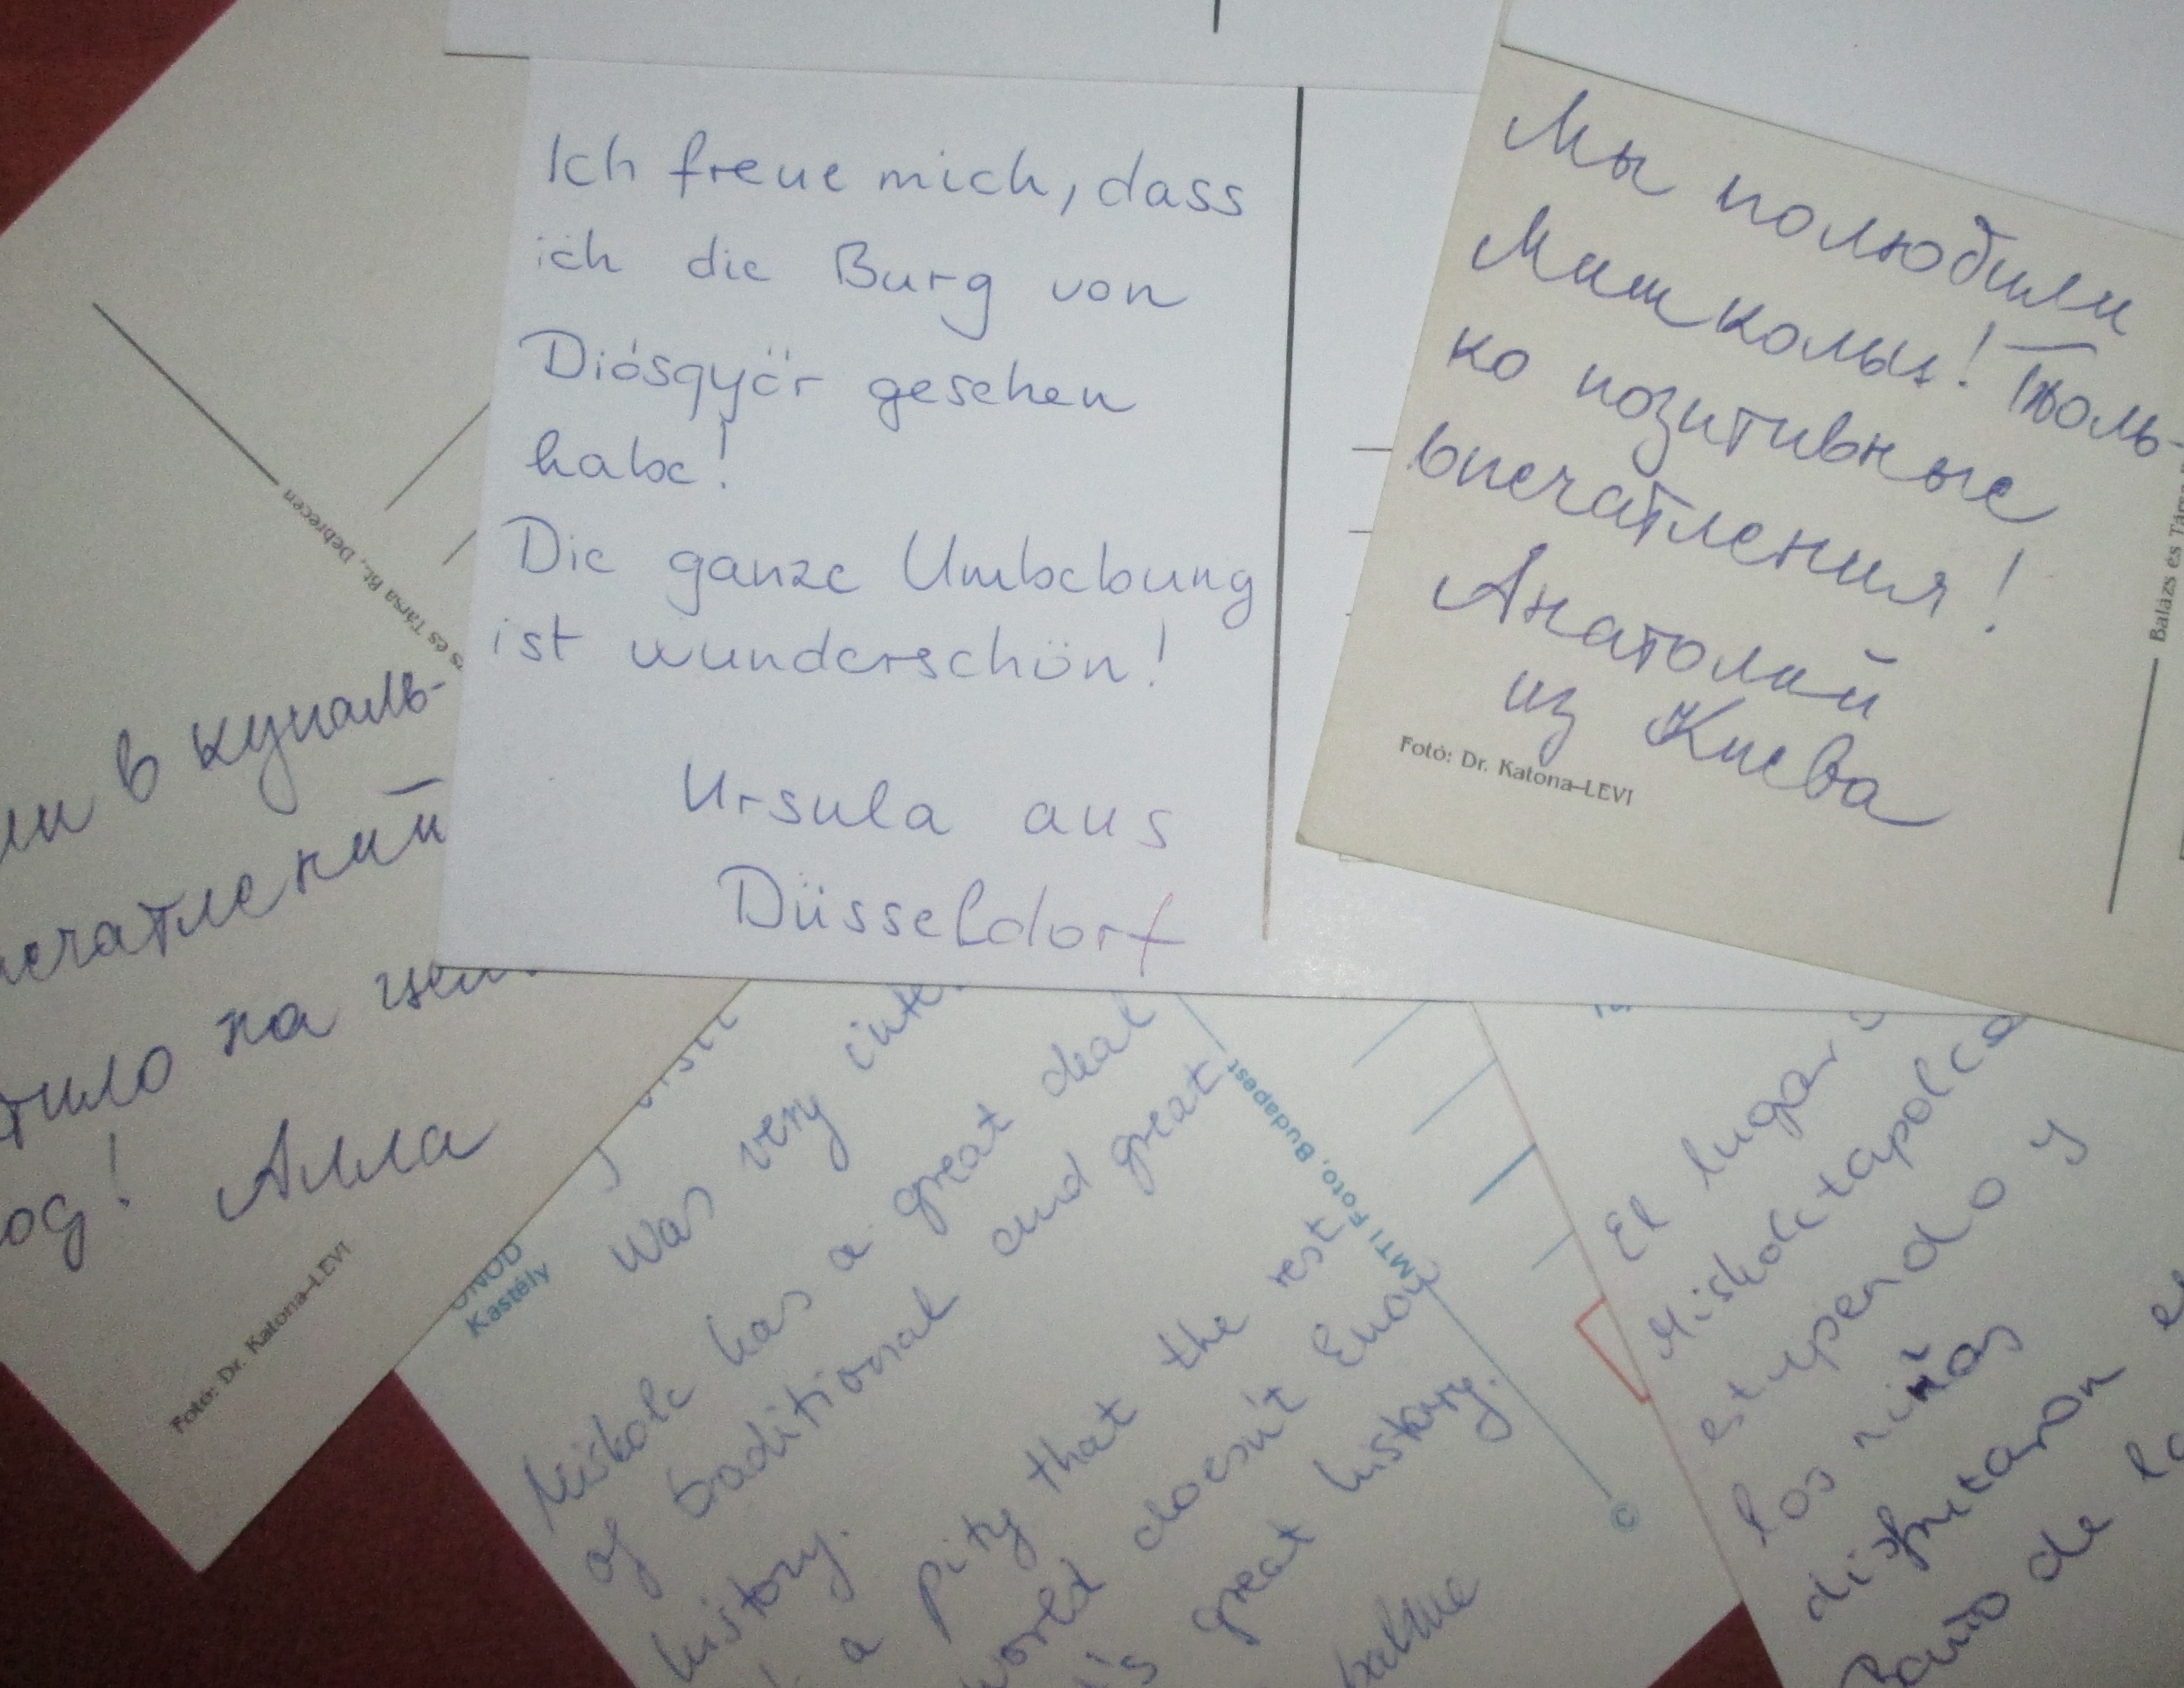 Ich freue mich, dass
ich die Burg von
Diósgyör gesehen
habe!
Die ganze Umbebung
ist wunderschön!
Ursula aus
Düsseldorf
Мы полюбили
Мишкольц! Толь-
ко позитивные
впечатления!
Анатолий
из Киева
Fotó: Dr. Katona–LEVI
Balázs és
és Társa Bt., Debrecen
в купаль-
на
Алла
Fotó: Dr. Katona–LEVI
Kastély
Was very
Miskolc has a great deal
of traditional and great
history.
a pity that the rest
world doesn't
great history.
MTI Fotó, Budapest
©
El lugar
Miskolctapolca
estupendo y
los niños
disfrutaron
Baño de